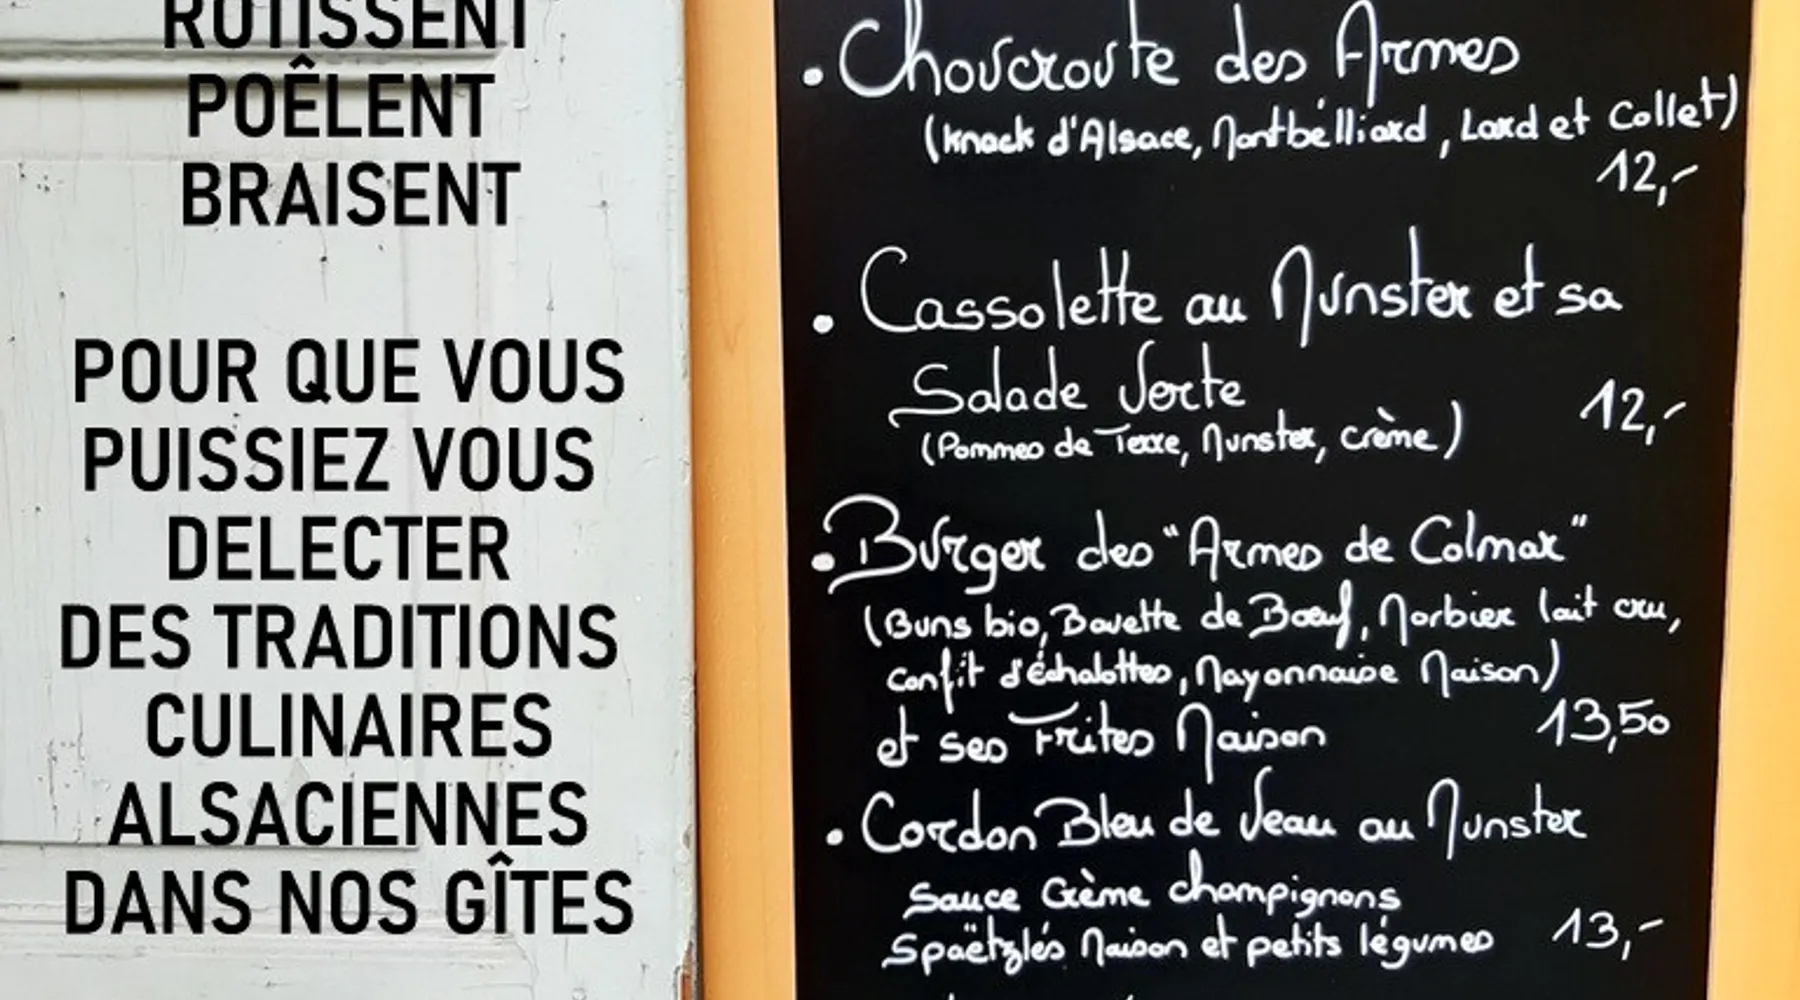 ROTISSENT
POÊLENT
BRAISENT
POUR QUE VOUS
PUISSIEZ VOUS
DELECTER
DES TRADITIONS
CULINAIRES
ALSACIENNES
DANS NOS GÎTES
• Choucroute des Armes
(Knack d'Alsace, Montbélliard, Lard et Collet)
12,-
• Cassolette au Munster et sa
Salade Verte
12,-
(Pommes de Terre, Munster, crème)
• Burger des "Armes de Colmar"
(Buns bio, Bavette de Bœuf, Morbier lait cru,
confit d'échalottes, Mayonnaise Maison)
et ses Frites Maison
13,50
• Cordon Bleu de Veau au Munster
Sauce Crème champignons
Spaëtzlés Maison et petits légumes
13,-